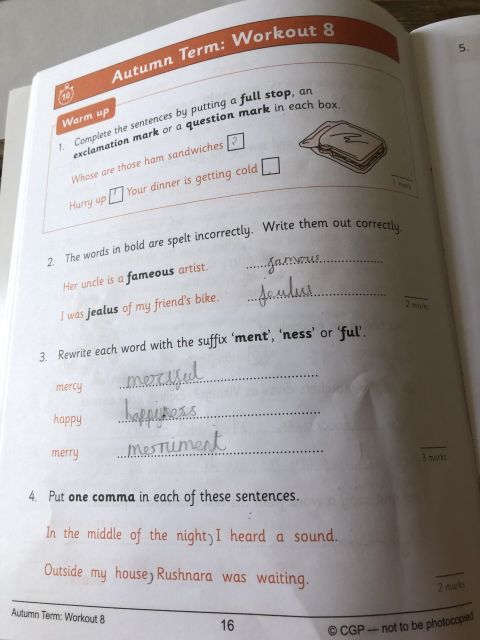 10
Autumn Term: Workout 8
5.
Warm up
1. Complete the sentences by putting a full stop, an
exclamation mark or a question mark in each box.
Whose are those ham sandwiches ?
Hurry up ! Your dinner is getting cold .
1 mark
2. The words in bold are spelt incorrectly. Write them out correctly.
Her uncle is a fameous artist. famous
I was jealus of my friend's bike.
2 marks
3. Rewrite each word with the suffix 'ment', 'ness' or 'ful'.
mercy
happy happyness
merry merriment
3 marks
4. Put one comma in each of these sentences.
In the middle of the night, I heard a sound.
Outside my house, Rushnara was waiting.
2 marks
Autumn Term: Workout 8
16
© CGP — not to be photocopied